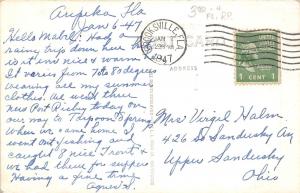 Aripeka Fla
Jan 6-47
Hello Mabel: Had a
rainy trip down here but
it is nice & warm
It varies from 70 to 80 degrees
wearing all my summer
clothes. We went thru
New Port Richy today on
our way to Tarpoon Springs
When we came home I
went out fishing and
caught 8 nice Trout &
we had them for supper
Having a fine time
Agnes S.
BROOKSVILLE, FLA.
JAN
1947
ADDRESS
1 CENT 1
Mrs Virgil Halm
426 So Sandusky Av
Upper Sandusky
Ohio